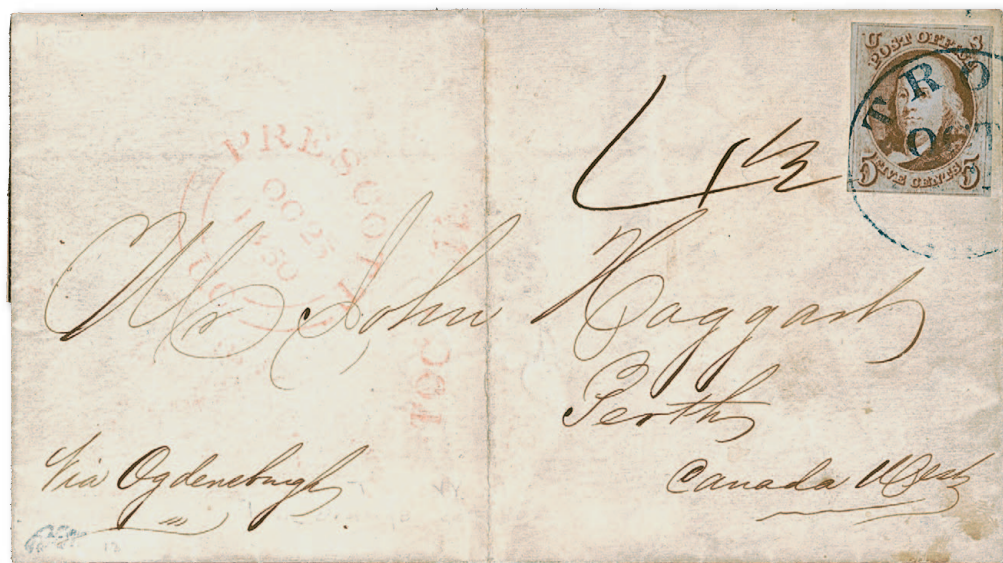 U S
POST OFFICE
5 FIVE CENTS 5
TRO
OCT
4 1/2
PRESCOTT
OC 25
1850
Mr John Haggart
Perth
Canada West
Via Ogdensburgh